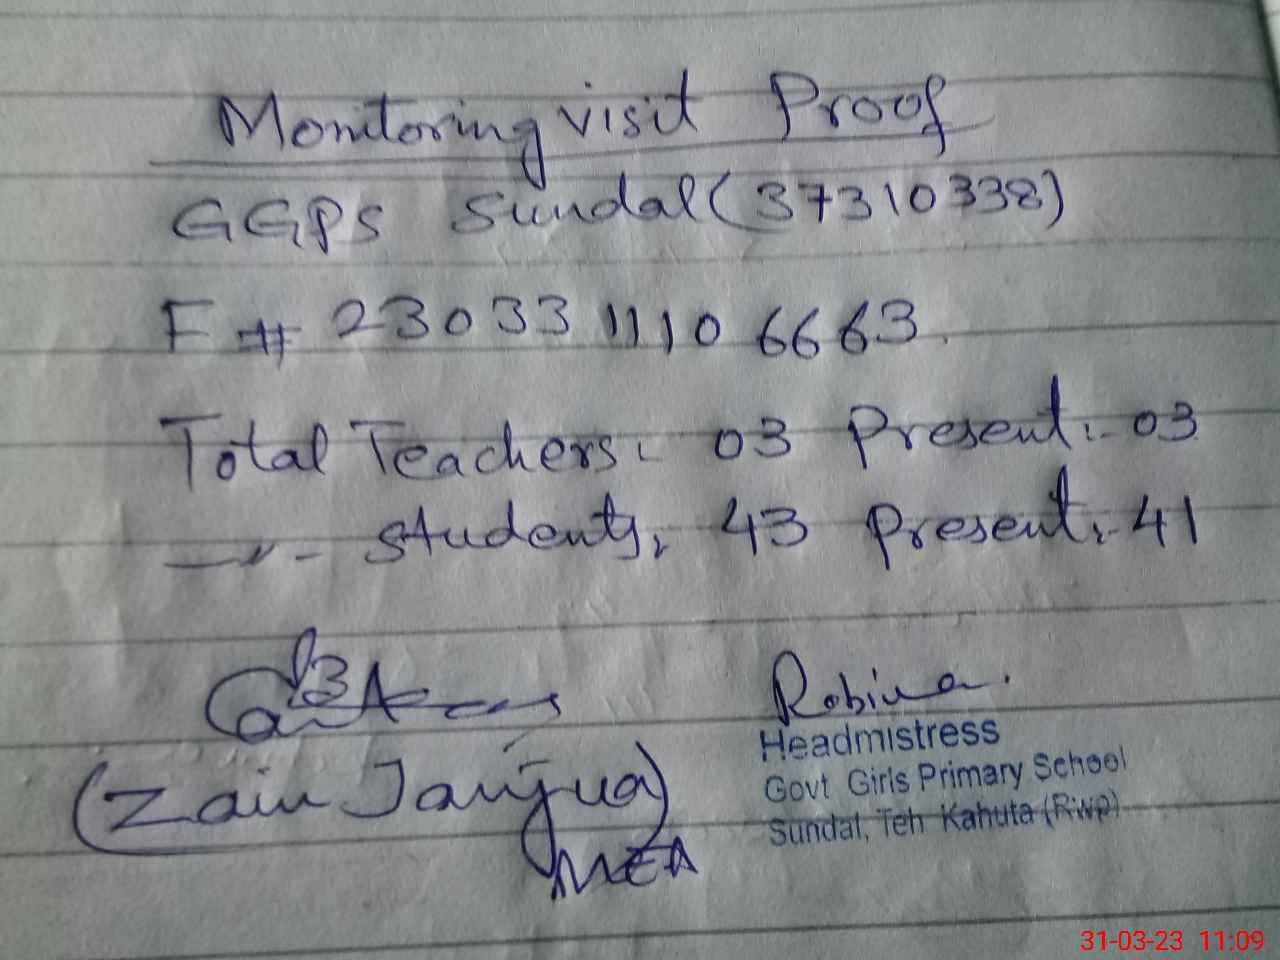 Monitoring visit Proof
GGPS Sundal (37310338)
F # 2303311106663.
Total Teachers:- 03 Present:- 03
—〃- Students:- 43 Present:- 41
Robina.
(Zain Janjua)
MEA
Headmistress
Govt Girls Primary School
Sundal, Teh Kahuta (Rwp)
31-03-23 11:09